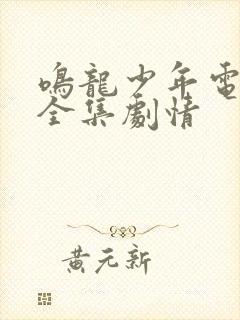 鳴龍少年電
全集劇情
黃元新